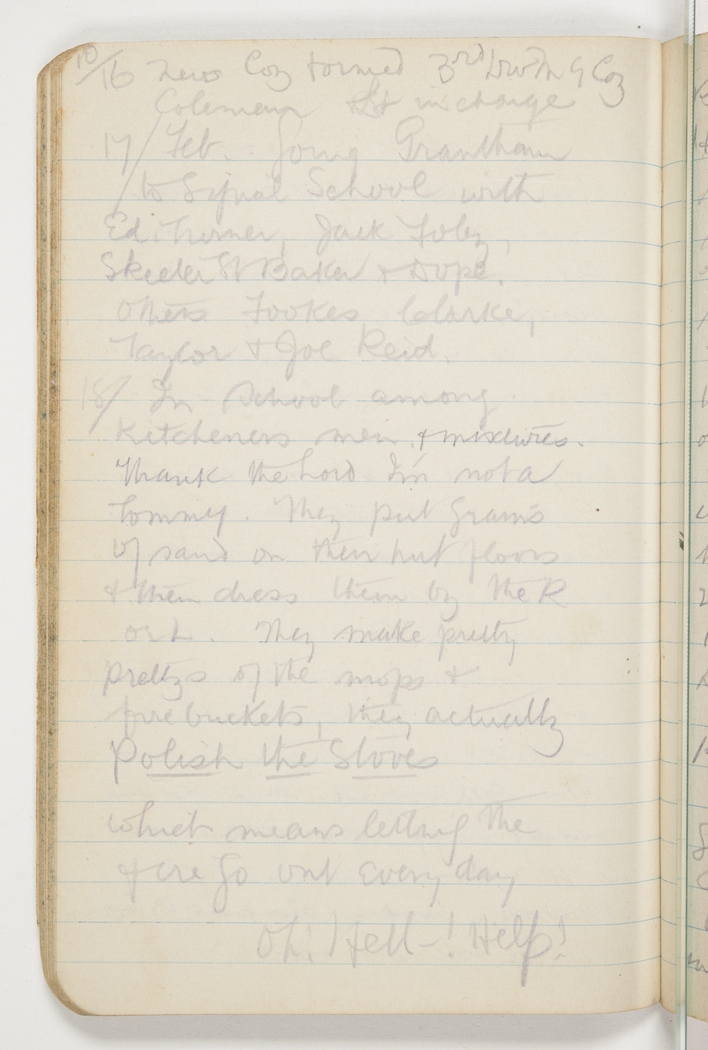 10/16 New Coy formed 3rd Div M G Coy
Coleman Lt in charge
17/ Feb. Going Grantham
to Signal School with
Ed. Turner, Jack Foley,
Skeeter St Baker & Dope.
others Fookes Clarke,
Taylor & Joe Reid.
18/ In school among
Kitcheners men, & mixtures.
Thank the Lord Im not a
Tommy. They put grains
of sand on their hut floors
& then dress them by the R
or L. They make pretty
prettys of the mops &
fire buckets, they actually
Polish the Stoves
which means letting the
fire go out every day
Oh! Hell-! Help!